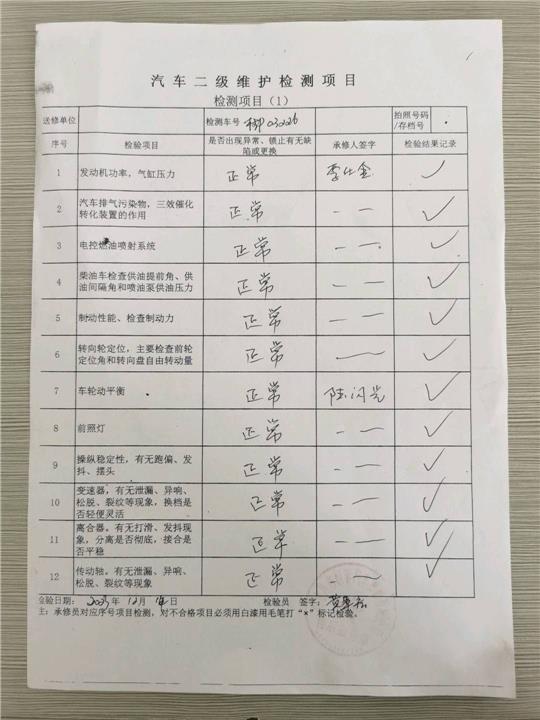 汽车二级维护检测项目
检测项目（1）
送修单位 检测车号 03226 拍照号码/存档号
序号 检验项目 是否出现异常、锁止有无缺陷或更换 承修人签字 检验结果记录
1 发动机功率，气缸压力 正常 ✓
2 汽车排气污染物，三效催化转化装置的作用 正常 — — ✓
3 电控燃油喷射系统 正常 — — ✓
4 柴油车检查供油提前角、供油间隔角和喷油泵供油压力 正常 — — ✓
5 制动性能、检查制动力 正常 — — ✓
6 转向轮定位，主要检查前轮定位角和转向盘自由转动量 正常 — ✓
7 车轮动平衡 正常 陆闪光 ✓
8 前照灯 正常 — — ✓
9 操纵稳定性，有无跑偏、发抖、摆头 正常 — — ✓
10 变速器，有无泄漏、异响、松脱、裂纹等现象，换档是否轻便灵活 正常 — — ✓
11 离合器。有无打滑、发抖现象，分离是否彻底，接合是否平稳 正常 — — ✓
12 传动轴。有无泄漏、异响、松脱、裂纹等现象 正常 — — ✓
验日期： 2023年 12月 日 检验员 签字：
主：承修员对应序号项目检测，对不合格项目必须用白漆用毛笔打“×”标记检验。